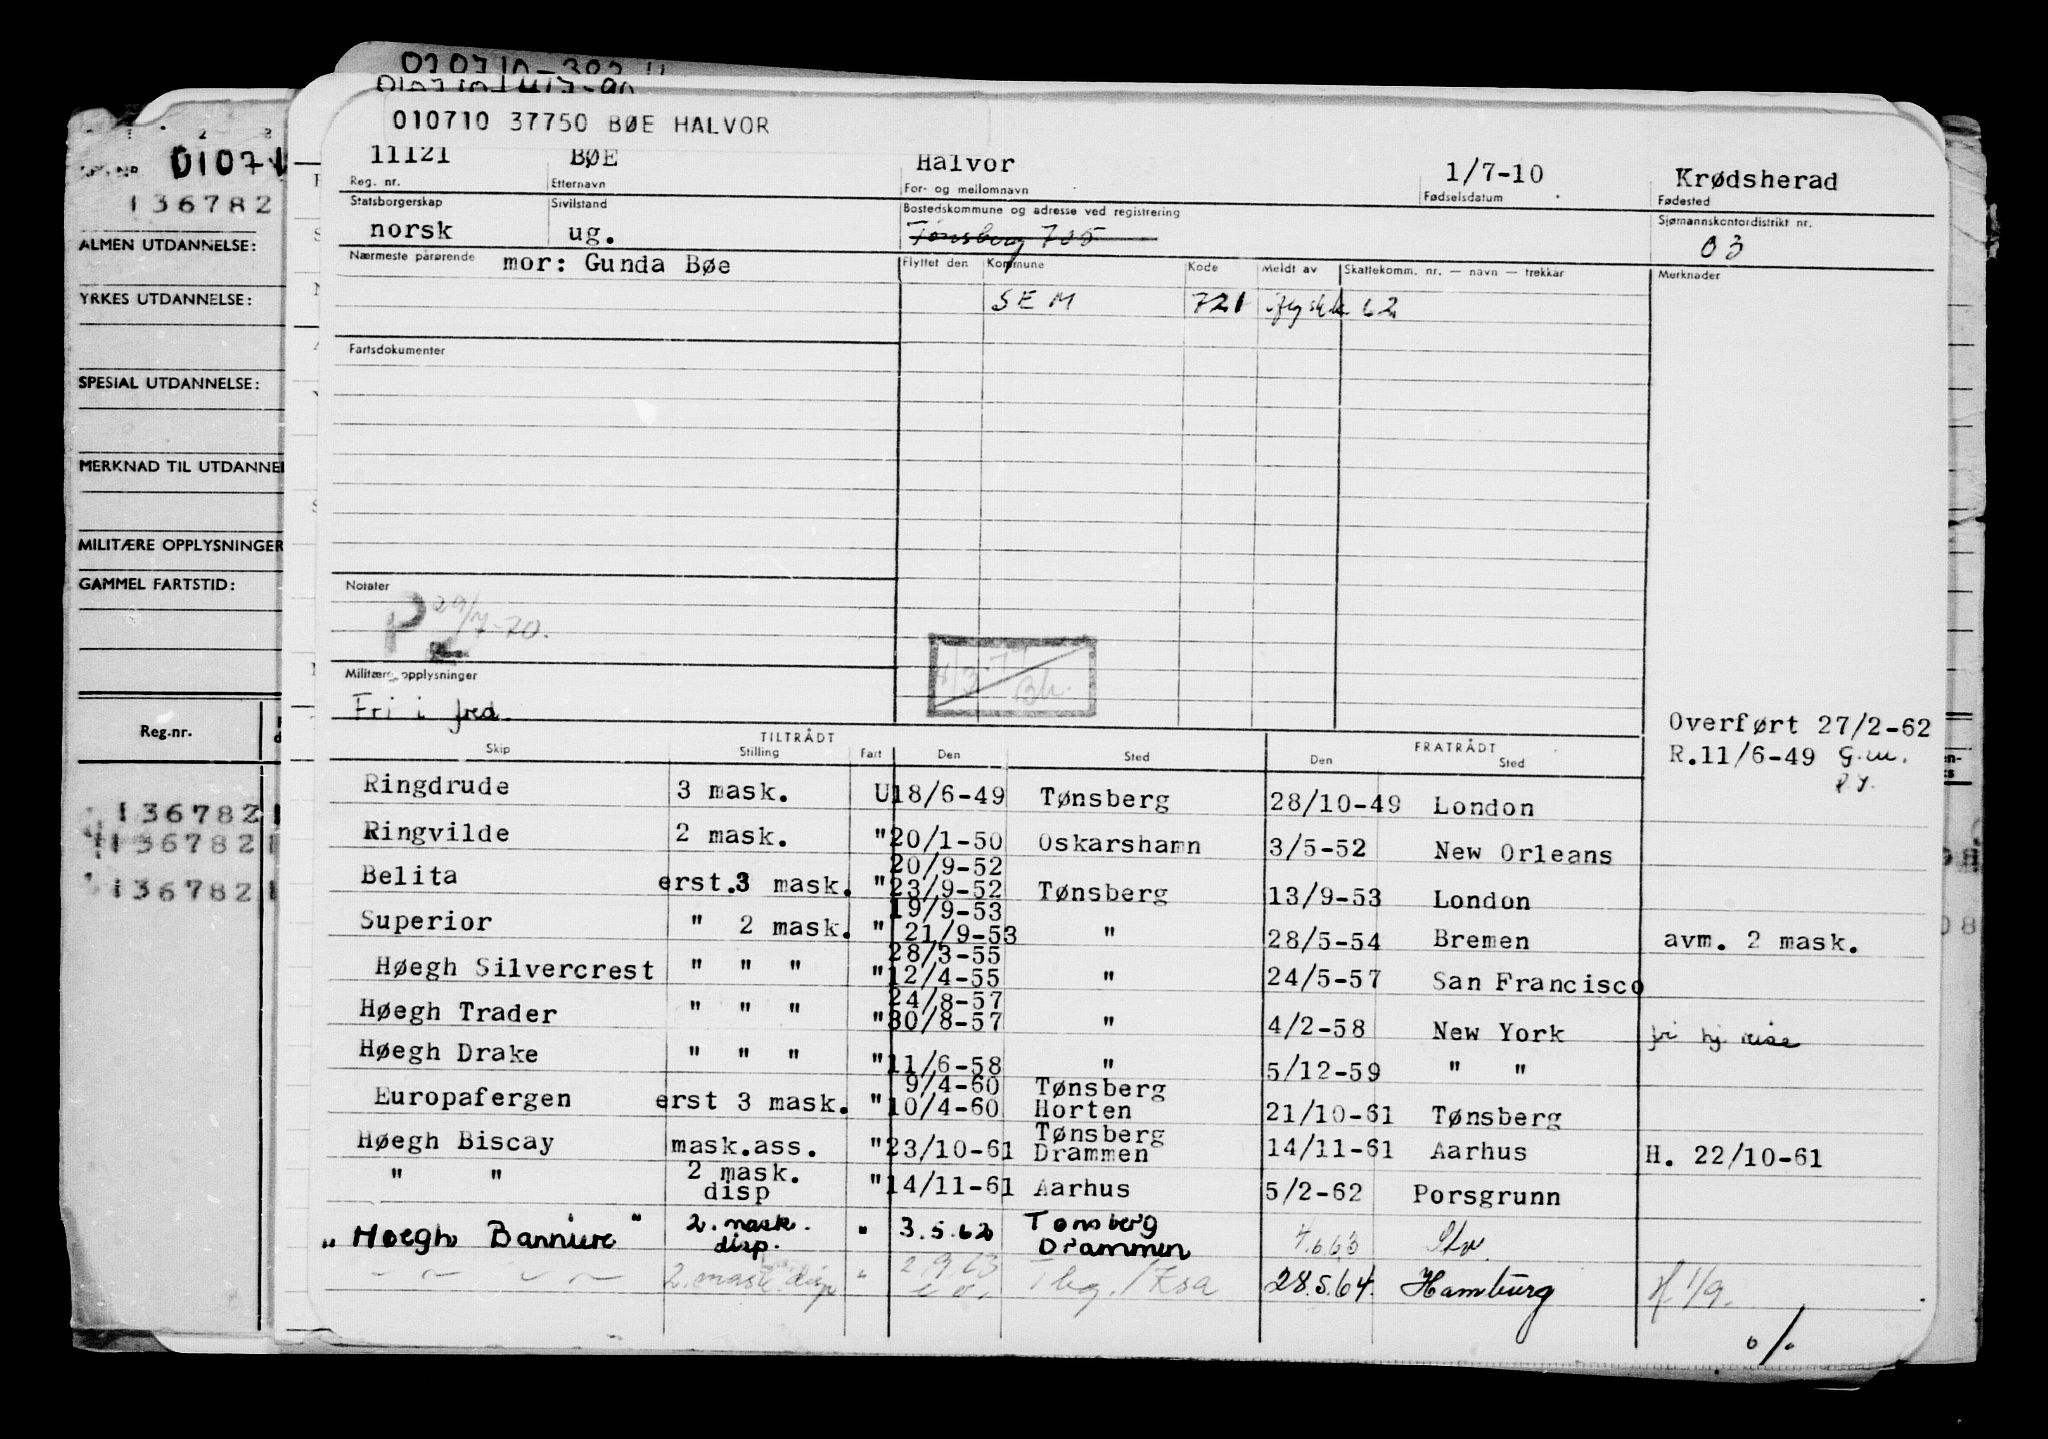 010710 37750 BØE HALVOR
11121 BØE Halvor 1/7-10 Krødsherad
Reg. nr. Etternavn For- og mellomnavn Fødselsdatum Fødested
Statsborgerskap Sivilstand Bostedskommune og adresse ved registrering Sjømannskontordistrikt nr.
norsk ug. Tønsberg 705 03
Nærmeste pårørende mor: Gunda Bøe Flyttet den Kommune Kode Meldt av Skattekomm. nr. — navn — trekkår Merknader
SEM 721 62
Fartsdokumenter
Notater
P 29/7-70.
Militære opplysninger
Fri i fred.
Overført 27/2-62
R.11/6-49 G.m.
P.y.
TILTRÅDT FRATRÅDT
Skip Stilling Fart Den Sted Den Sted
Ringdrude 3 mask. U 18/6-49 Tønsberg 28/10-49 London
Ringvilde 2 mask. " 20/1-50 Oskarshamn 3/5-52 New Orleans
20/9-52
Belita erst.3 mask. " 23/9-52 Tønsberg 13/9-53 London
19/9-53
Superior " 2 mask. " 21/9-53 " 28/5-54 Bremen avm. 2 mask.
28/3-55
Høegh Silvercrest " " " " 12/4-55 " 24/5-57 San Francisco
24/8-57
Høegh Trader " " " " 30/8-57 " 4/2-58 New York fri hj. reise
Høegh Drake " " " " 11/6-58 " 5/12-59 " "
9/4-60 Tønsberg
Europafergen erst 3 mask. " 10/4-60 Horten 21/10-61 Tønsberg
Tønsberg
Høegh Biscay mask.ass. " 23/10-61 Drammen 14/11-61 Aarhus H. 22/10-61
2 mask.
" " disp " 14/11-61 Aarhus 5/2-62 Porsgrunn
2. mask. Tønsberg
" Høegh Banniere " disp. " 3.5.62 Drammen 4.6.63
2. mask. disp " 2.9.63 Tbg. 28.5.64. Hamburg H 1/9.
o/.
1 2 3
136782
ALMEN UTDANNELSE:
YRKES UTDANNELSE:
SPESIAL UTDANNELSE:
MERKNAD TIL UTDANNEL
MILITÆRE OPPLYSNINGER
GAMMEL FARTSTID:
Reg.nr.
136782
136782
136782